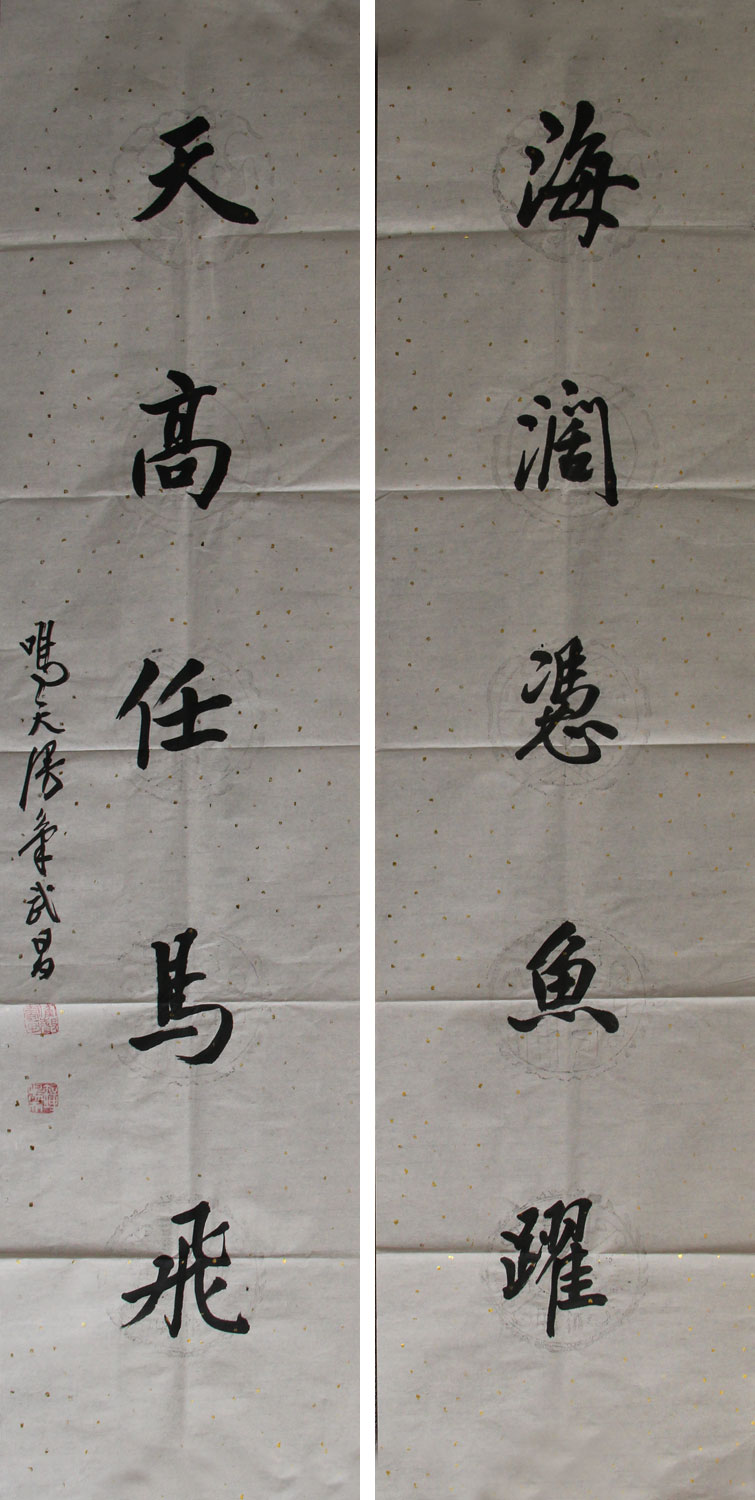 海濶憑魚躍
天高任馬飛
鳴天 武昌